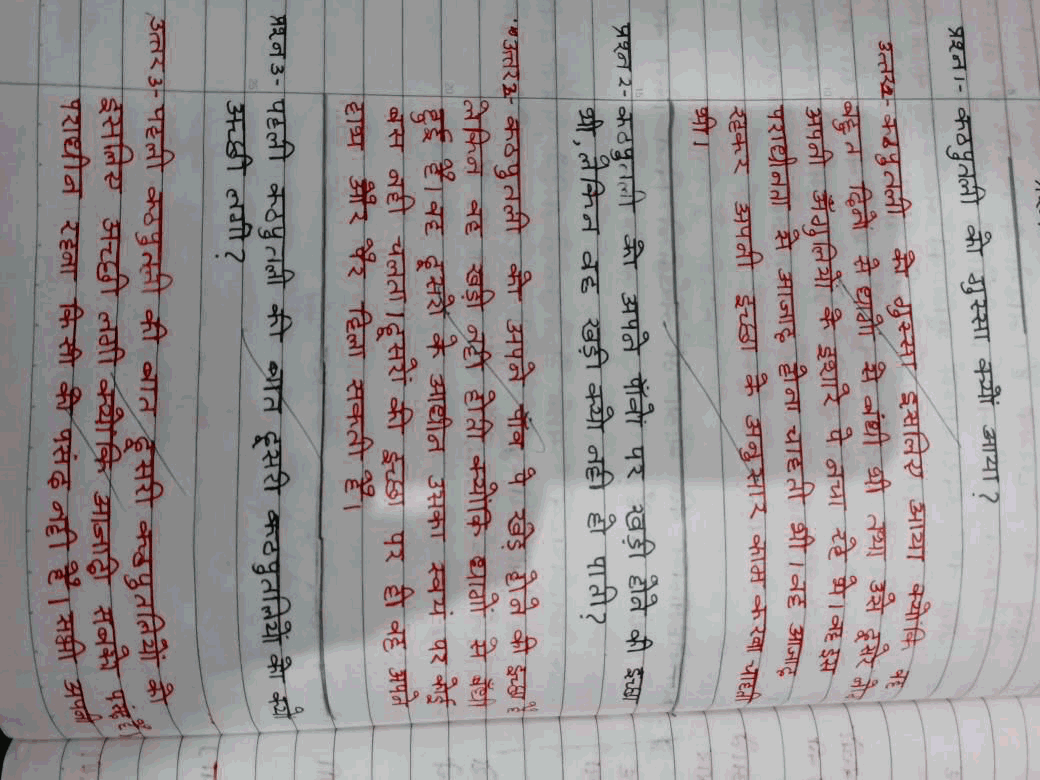 प्रश्न 1- कठपुतली को गुस्सा क्यों आया?
उत्तर 1- कठपुतली को गुस्सा इसलिए आया क्योंकि वह
बहुत दिनों से धागो से बंधी थी तथा उसे दूसरे लोग
अपनी अँगुलियों के इशारे पे नचा रहे थे। वह इस
पराधीनता से आजाद होना चाहती थी। वह आजाद
रहकर अपनी इच्छा के अनुसार काम करना चाहती
थी।
प्रश्न 2- कठपुतली को अपने पाँवो पर खड़ी होने की इच्छा
थी, लेकिन वह खड़ी क्यो नही हो पाती?
उत्तर 2- कठपुतली को अपने पाँव पे खड़े होने की इच्छा है
लेकिन वह खड़ी नही होती क्योकि धागों से बंधी
हुई है। वह दूसरो के आधीन उसका स्वयं पर कोई
बस नही चलता। दूसरों की इच्छा पर ही वह अपने
हाथ और पैर हिला सकती है।
प्रश्न 3- पहली कठपुतली की बात दूसरी कठपुतलियों को क्यो
अच्छी लगी?
उत्तर 3- पहली कठपुतली की बात दूसरी कठपुतलियों को
इसलिए अच्छी लगी क्योकि आजादी सबको पसंद है
पराधीन रहना किसी को पसंद नही है। सभी अपनी